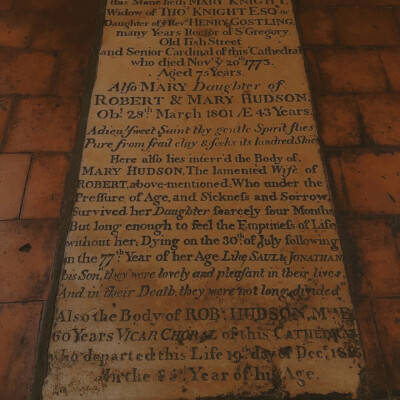 this Stone lieth MARY KNIGHT,
Widow of THOs KNIGHT ESQr
Daughter of ye Revd HENRY GOSTLING,
many Years Rector of S Gregory
Old Fish Street
and Senior Cardinal of this Cathedral
who died Novr ye 20th 1773.
Aged 75 Years.
Also MARY Daughter of
ROBERT & MARY HUDSON.
Obt 28th March 1801 Æ 43 Years.
Adieu! sweet Saint thy gentle Spirit flies
Pure from frail clay & seeks its kindred Skies
Here also lies interr'd the Body of,
MARY HUDSON, The lamented Wife of
ROBERT, above-mentioned, Who under the
Pressure of Age, and Sickness and Sorrow,
Survived her Daughter scarcely four Months
But long enough to feel the Emptiness of Life
without her; Dying on the 30th of July following
in the 77th Year of her Age. Like SAUL & JONATHAN
his Son, they were lovely and pleasant in their lives,
And in their Death, they were not long divided
Also the Body of ROBt HUDSON, M
60 Years VICAR CHORAL of this CATHEDRAL
who departed this Life 19th day of Decr
In the Year of his Age.